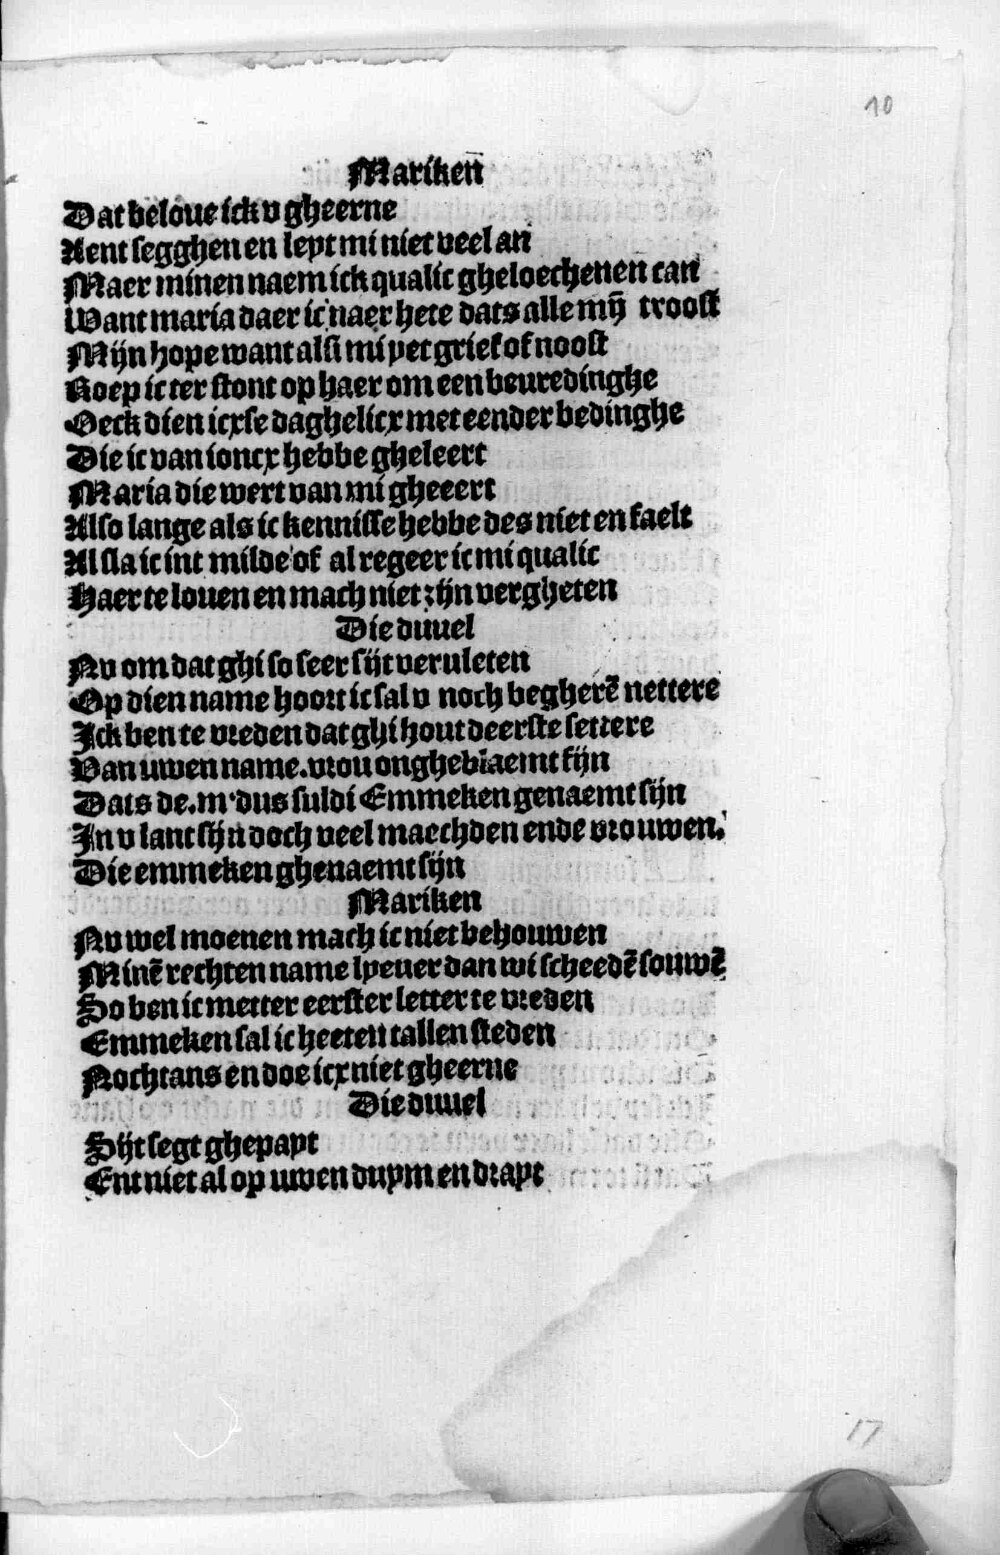 10
Marikēn
Dat beloue ick v gheerne
Aent segghen en leyt mi niet veel an
Maer minen naem ick qualic gheloechenen can
Want maria daer ic naer hete dats alle mijn̄ troost
Mijn hope want alsi mi yet grief of noost
Roep ic ter stont op haer om een beuredinghe
Oeck dien icxse daghelicx met eender bedinghe
Die ic van ioncx hebbe gheleert
Maria die wert van mi gheeert
Also lange als ic kennisse hebbe des niet en faelt
Al sla ic int milde of al regeer ic mi qualic
Haer te louen en mach niet zijn vergheten
Die duuel
Nv om dat ghi so seer sijt veruleten
Op dien name hoort ic sal v noch begherē nettere
Ick ben te vreden dat ghi hout deerste lettere
Van uwen name. vrou ongheblaemt fijn
Dats de .m. dus suldi Emmeken genaemt sijn
In v lant sijn doch veel maechden ende vrouwen.
Die emmeken ghenaemt sijn
Mariken
Nv wel moenen mach ic niet behouwen
Minē rechten name lyeuer dan wi scheedē souwē
So ben ic metter eerster letter te vreden
Emmeken sal ic heeten tallen steden
Nochtans en doe icx niet gheerne
Die duuel
Sijt segt ghepayt
Ent niet al op uwen duym en drayt
17